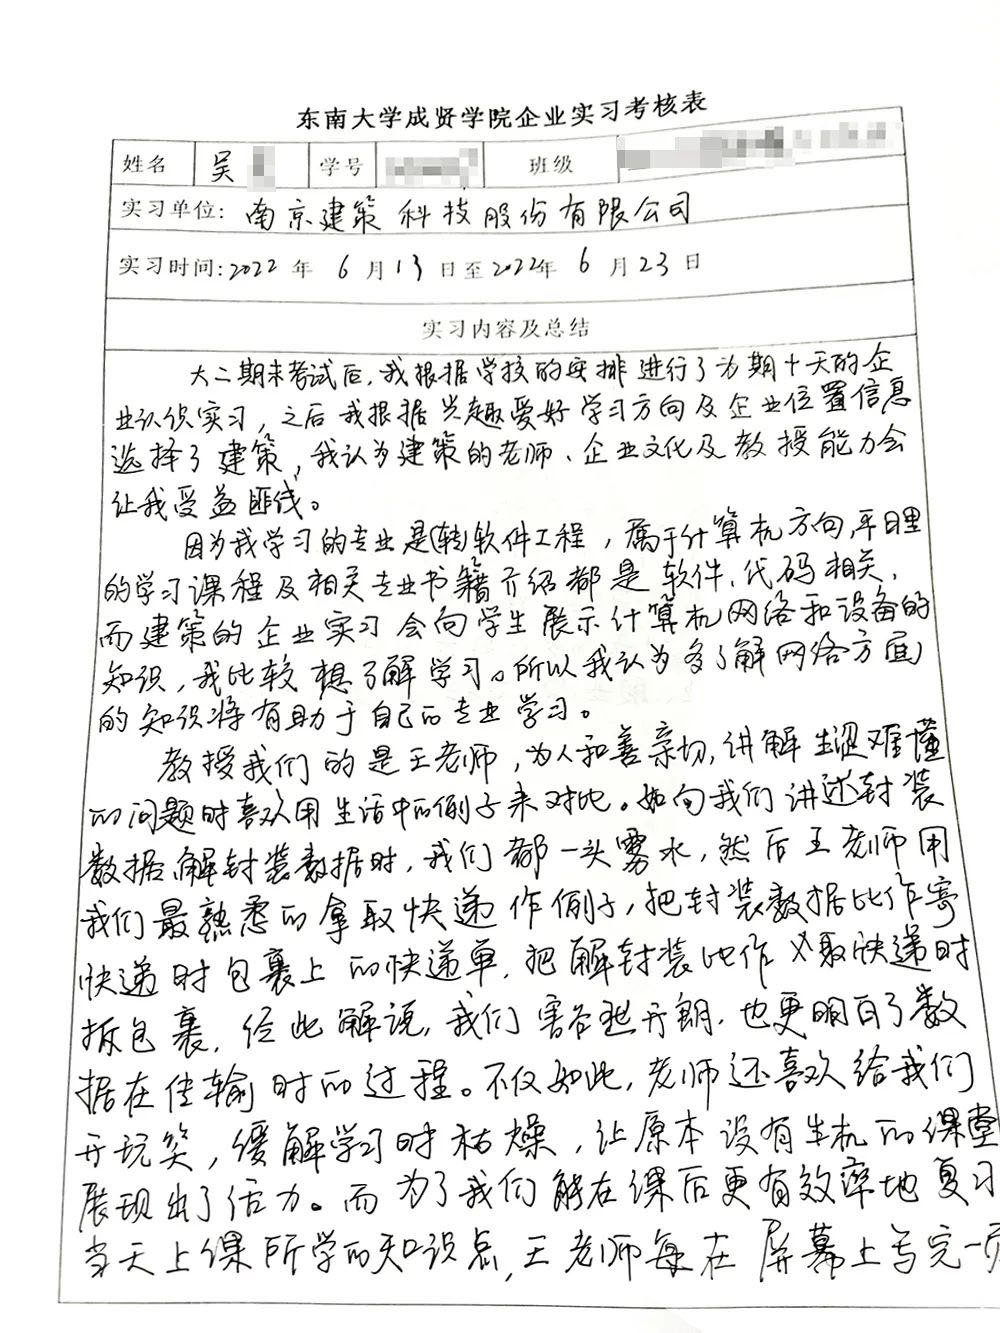 东南大学成贤学院企业实习考核表
姓名 吴 学号 班级
实习单位: 南京建策科技股份有限公司
实习时间: 2022 年 6 月 13 日至 2022年 6 月 23 日
实习内容及总结
大二期末考试后,我根据学校的安排进行了为期十天的企
业认识实习,之后我根据兴趣爱好学习方向及企业位置信息
选择了建策,我认为建策的老师、企业文化及教授能力会
让我受益匪浅。
因为我学习的专业是(转)软件工程,属于计算机方向,平日里
的学习课程及相关专业书籍介绍都是软件、代码相关,
而建策的企业实习会向学生展示计算机网络和设备的
知识,我比较想了解学习。所以我认为多了解网络方面
的知识将有助于自己的专业学习。
教授我们的是王老师,为人和善亲切,讲解生涩难懂
的问题时喜欢用生活中的例子来对比。如向我们讲述封装
数据,解封装数据时,我们都一头雾水,然后王老师用
我们最熟悉的拿取快递作例子,把封装数据比作寄
快递时包裹上的快递单,把解封装比作收取快递时
拆包裹,经此解说,我们豁然开朗,也更明白了数
据在传输时的过程。不仅如此,老师还喜欢给我们
开玩笑,缓解学习时枯燥,让原本没有生机的课堂
展现出了活力。而为了我们能在课后更有效率地复习
当天上课所学的知识点,王老师每在屏幕上写完一页